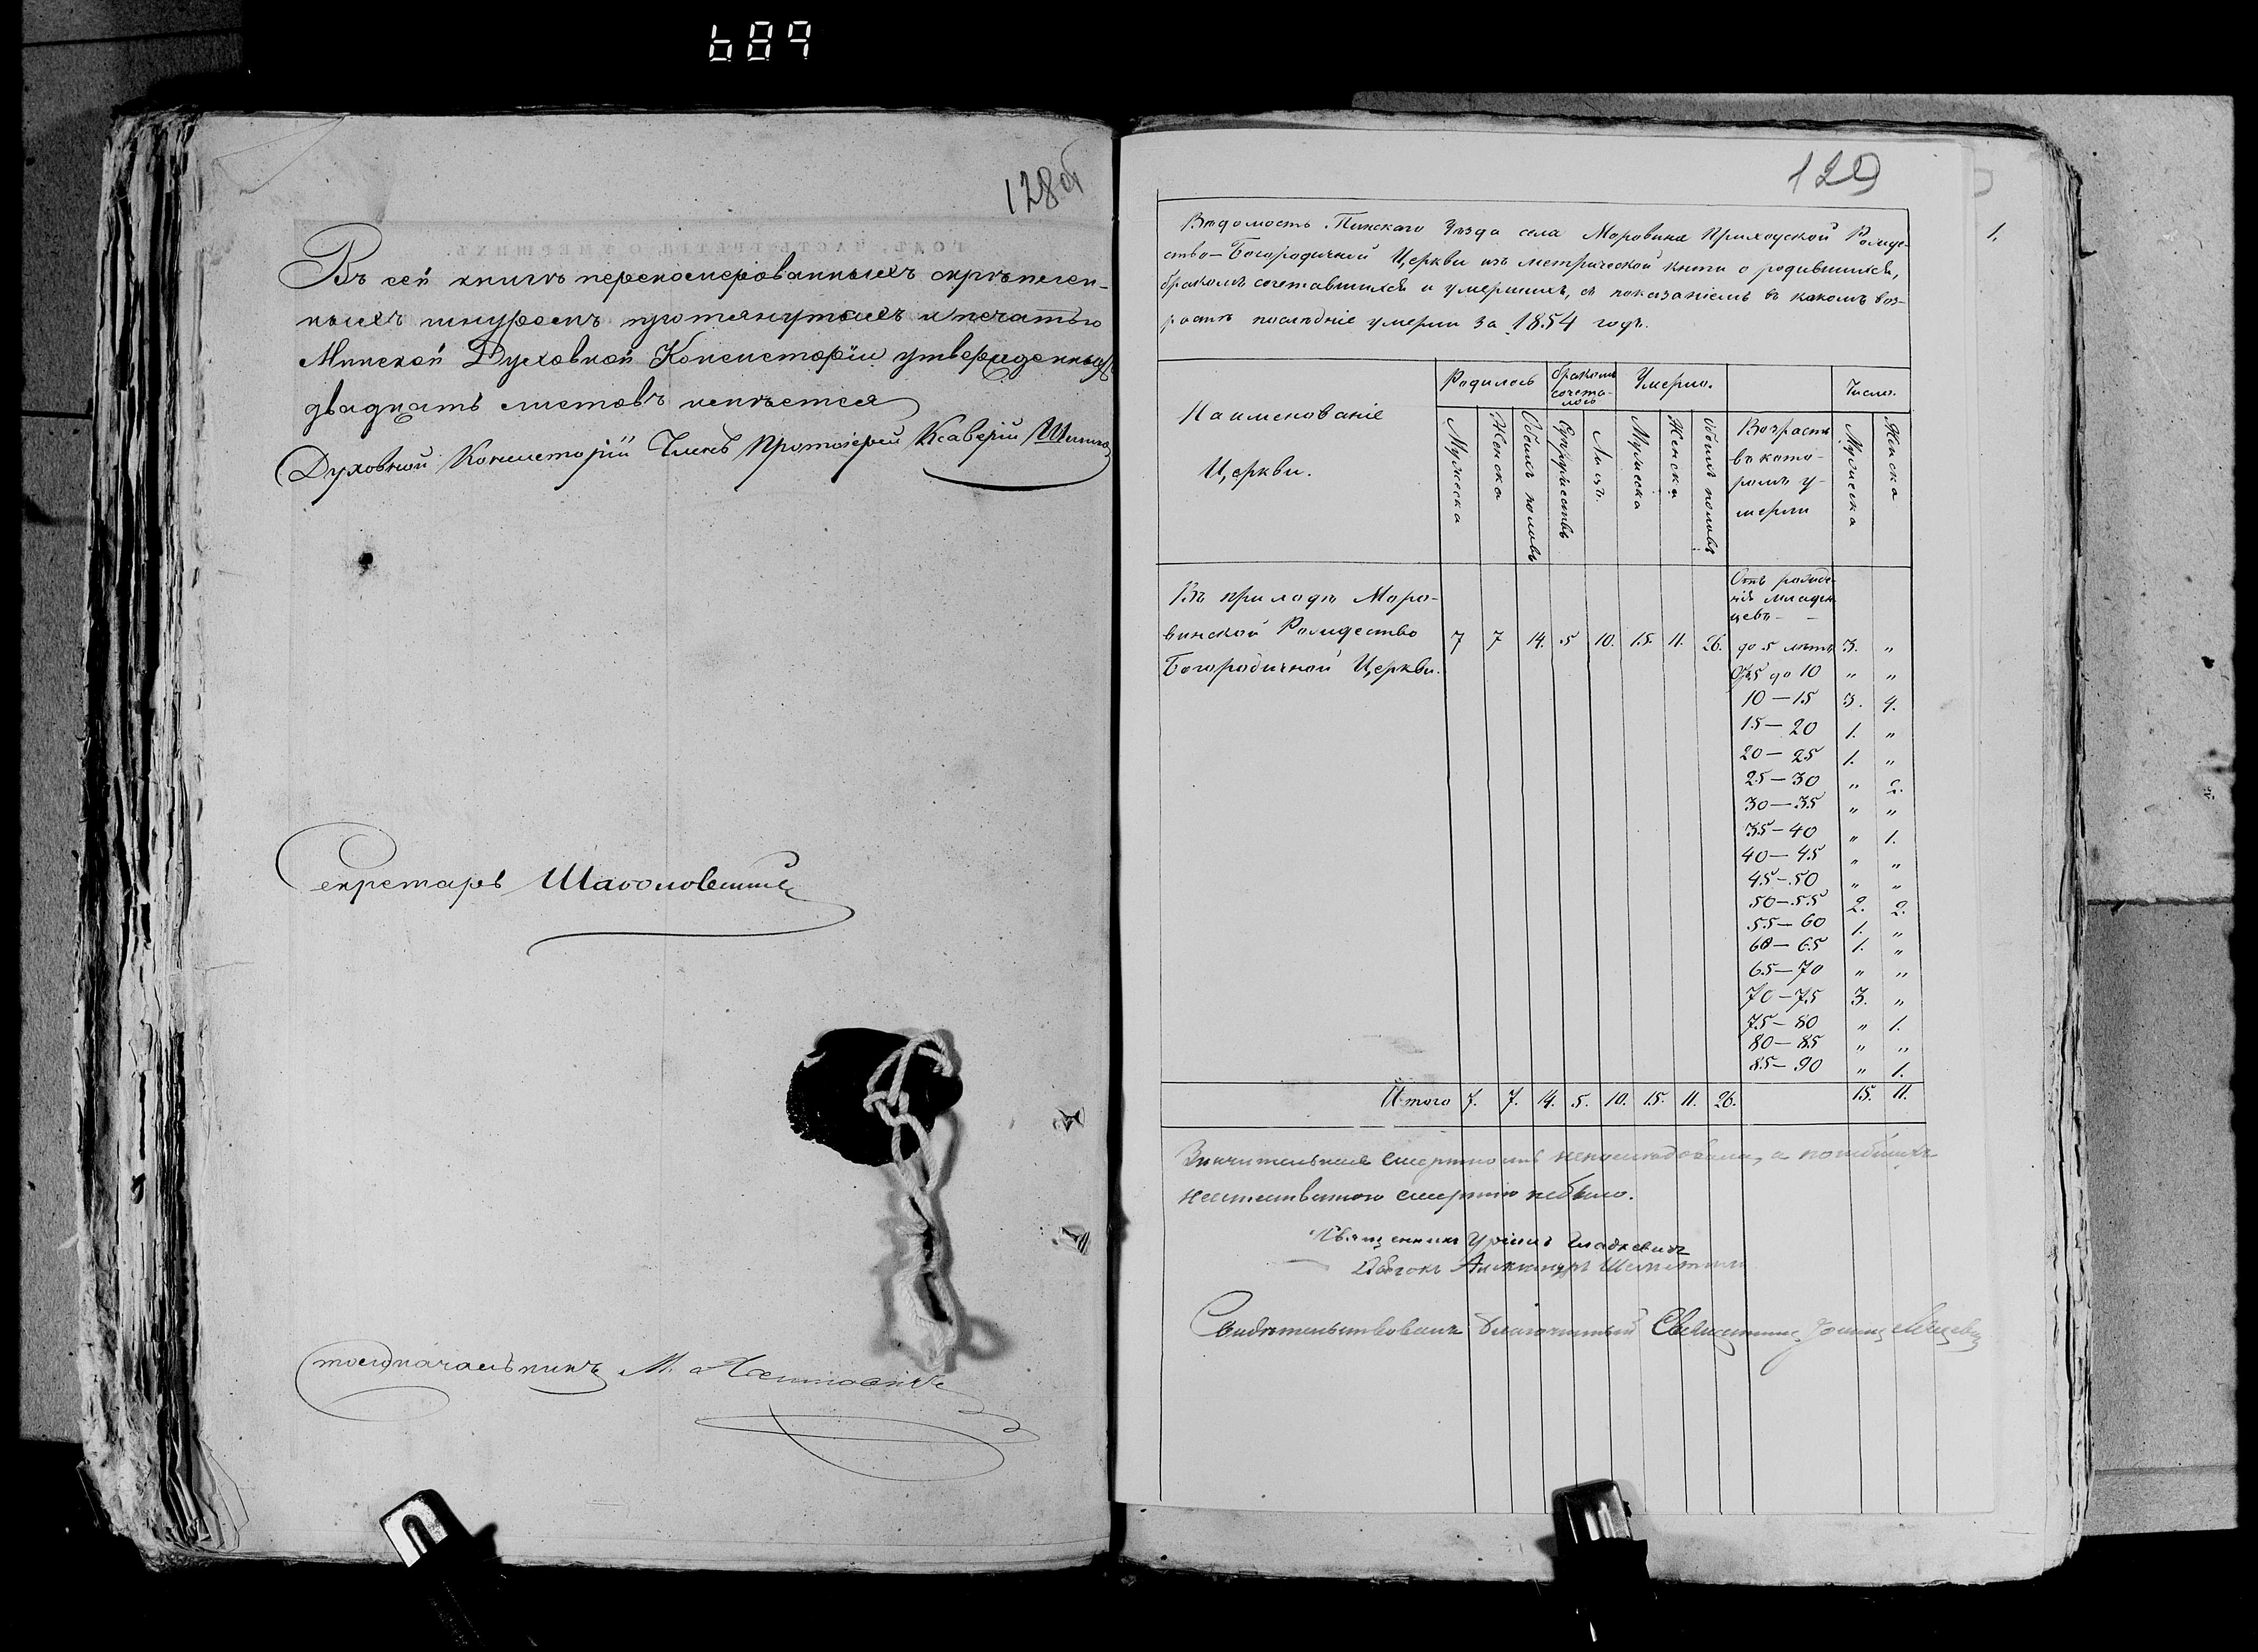 689
128об
Въ сей книгѣ перенумерованныхъ скрѣплен-
ныхъ шнуромъ протянутыхъ и печатью
Минской Духовной Консисторіи утвержденныхъ
двадцать листовъ имѣется
Духовной Консисторіи Членъ Протоіерей Ксаверій
Секретарь
Столоначальникъ М.
129
1.
Вѣдомость Пинскаго Уѣзда села Моровина Приходской Рожде-
ство-Богородичной Церкви изъ метрической книги о родившихся,
бракомъ сочетавшихся и умершихъ, съ показаніемъ въ какомъ воз-
растѣ послѣдніе умерли за 1854 годъ.
Наименованіе Церкви.
Родилось
бракомъ сочета-лось
Умерло.
Число.
Мужеска
Женска
Обоихъ половъ
Супружествъ
Лицъ.
Мужеска
Женска
Обоихъ половъ
Возрастъ
въ кото-
ромъ у-
мерли
Мужеска
Женска
Въ приходѣ Моро-
винской Рождество
Богородичной Церкви.
7 7 14. 5 10. 15. 11. 26.
Отъ рожде-
нія младен
цевъ
до 5 лѣтъ 3. "
Отъ 5 до 10 " "
10 — 15 3. 4.
15 — 20 1. "
20 — 25 1. "
25 — 30 " 2.
30 — 35 " "
35 — 40 " 1.
40 — 45 " "
45 — 50 " "
50 — 55 2. 2.
55 — 60 1. "
60 — 65 1. "
65 — 70 " "
70 — 75 3. "
75 — 80 " 1.
80 — 85 " "
85 — 90 " 1.
Итого 7. 7. 14. 5. 10. 15. 11. 26. 15. 11.
Значительная смертность непослѣдовала, а погибшихъ
неестественною смертію небыло.
Священникъ Гладкевичъ
Дьячокъ Александръ
Свидѣтельствовалъ Благочинный Священникъ